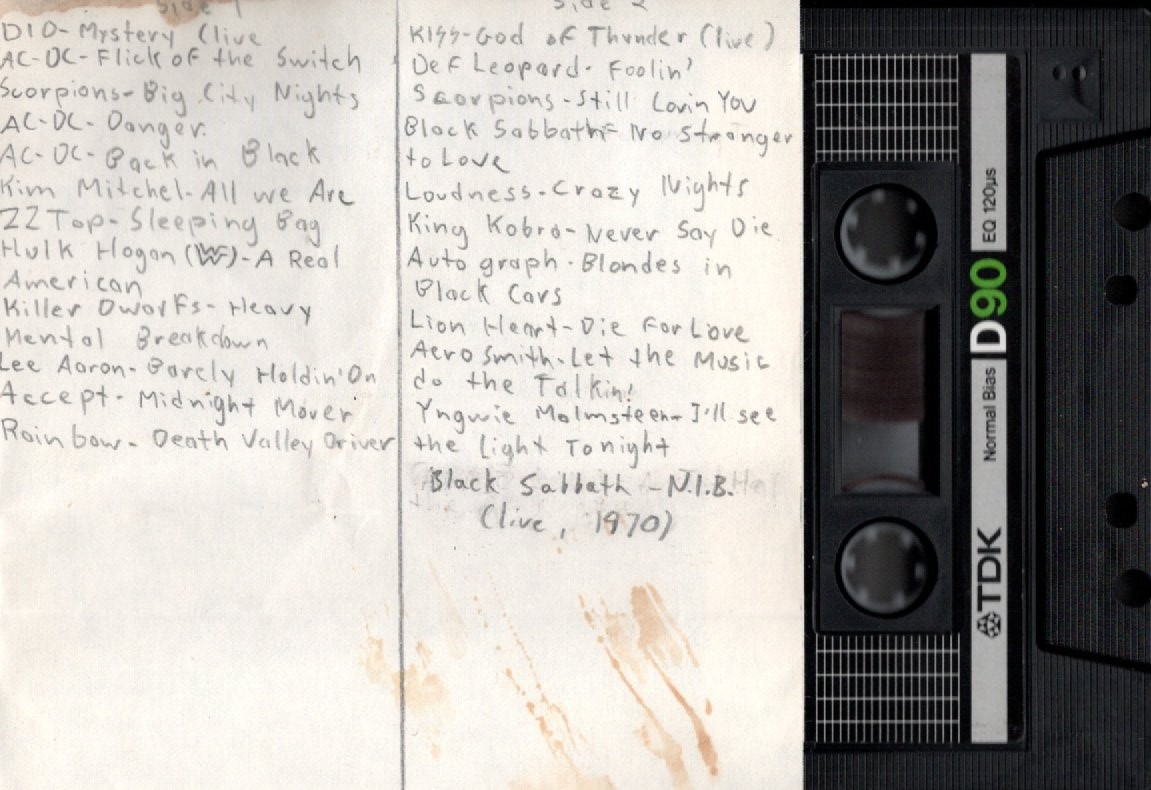 Side 1
DIO-Mystery (live
AC-DC-Flick of the Switch
Scorpions-Big City Nights
AC-DC-Danger.
AC-DC-Back in Black
Kim Mitchel-All we Are
ZZ Top-Sleeping Bag
Hulk Hogan (WF)-A Real
American
Killer Dwarfs-Heavy
Mental Breakdown
Lee Aaron-Barely Holdin'On
Accept-Midnight Mover
Rainbow-Death Valley Driver
Side 2
KISS-God of Thunder (live)
Def Leopard-Foolin'
Scorpions-Still Lovin You
Black Sabbath-No Stranger
to Love
Loudness-Crazy Nights
King Kobra-Never Say Die
Autograph-Blondes in
Black Cars
Lion Heart-Die For Love
Aerosmith-Let the Music
do the Talkin!
Yngwie Malmsteen-I'll see
the light Tonight
Black Sabbath-N.I.B.
(live, 1970)
TDK Normal Bias D90 EQ 120µs